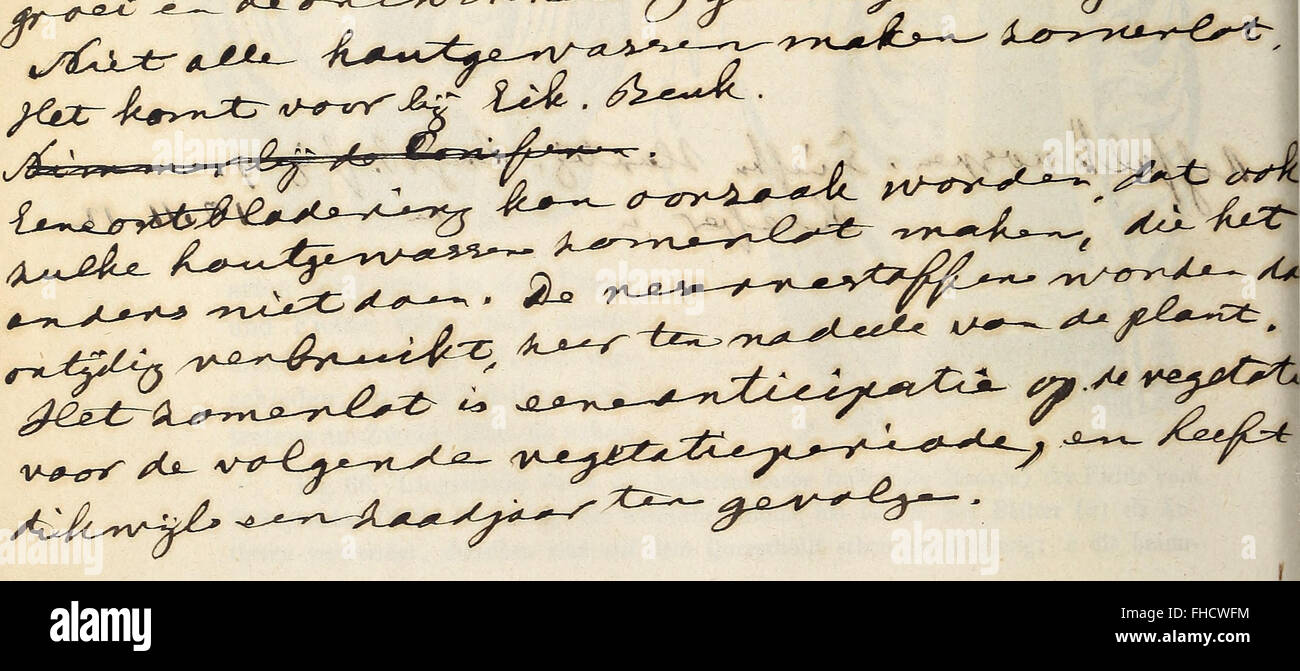 groei en de
Niet alle houtgewassen maken zomerlot.
Het komt voor bij Eik. Beuk.
Nimmer bij de Coniferen.
Eene ontbladering kan oorzaak worden, dat ook
zulke houtgewassen zomerlot maken, die het
anders niet doen. De reservestoffen worden
ontijdig verbruikt, zeer ten nadeele van de plant.
Het zomerlot is eene anticipatie op de vegetati
voor de volgende vegetatieperiode, en heeft
dikwijls een zaadjaar ten gevolge.
alamy
Image ID: FHCWFM
www.alamy.com